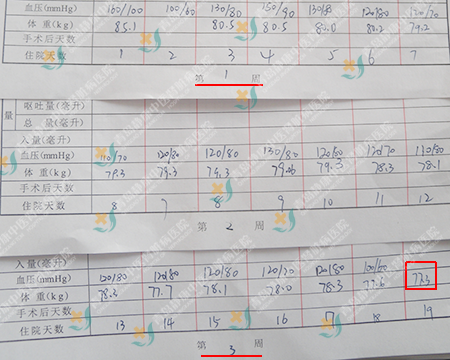 血压(mmHg) 160/100 100/60 130/80 150/90 130/80 120/80 120/70
体 重(kg) 85.1 80.5 80.5 80.0 80.2 79.2
手术后天数
住院天数 1 2 3 4 5 6 7
第 1 周
量
呕吐量(毫升)
总 量(毫升)
入量(毫升)
血压(mmHg) 110/70 120/80 120/80 130/80 120/80 130/80
体 重(kg) 79.3 79.3 79.3 79.3 78.3 78.1
手术后天数
住院天数 8 7 8 9 10 11 12
第 2 周
入量(毫升)
血压(mmHg) 120/80 120/80 120/80 120/80 100/60
体 重(kg) 78.3 77.7 78.1 78.0 78.3 77.6 77.3
手术后天数
住院天数 13 14 15 16 17 18 19
第 3 周